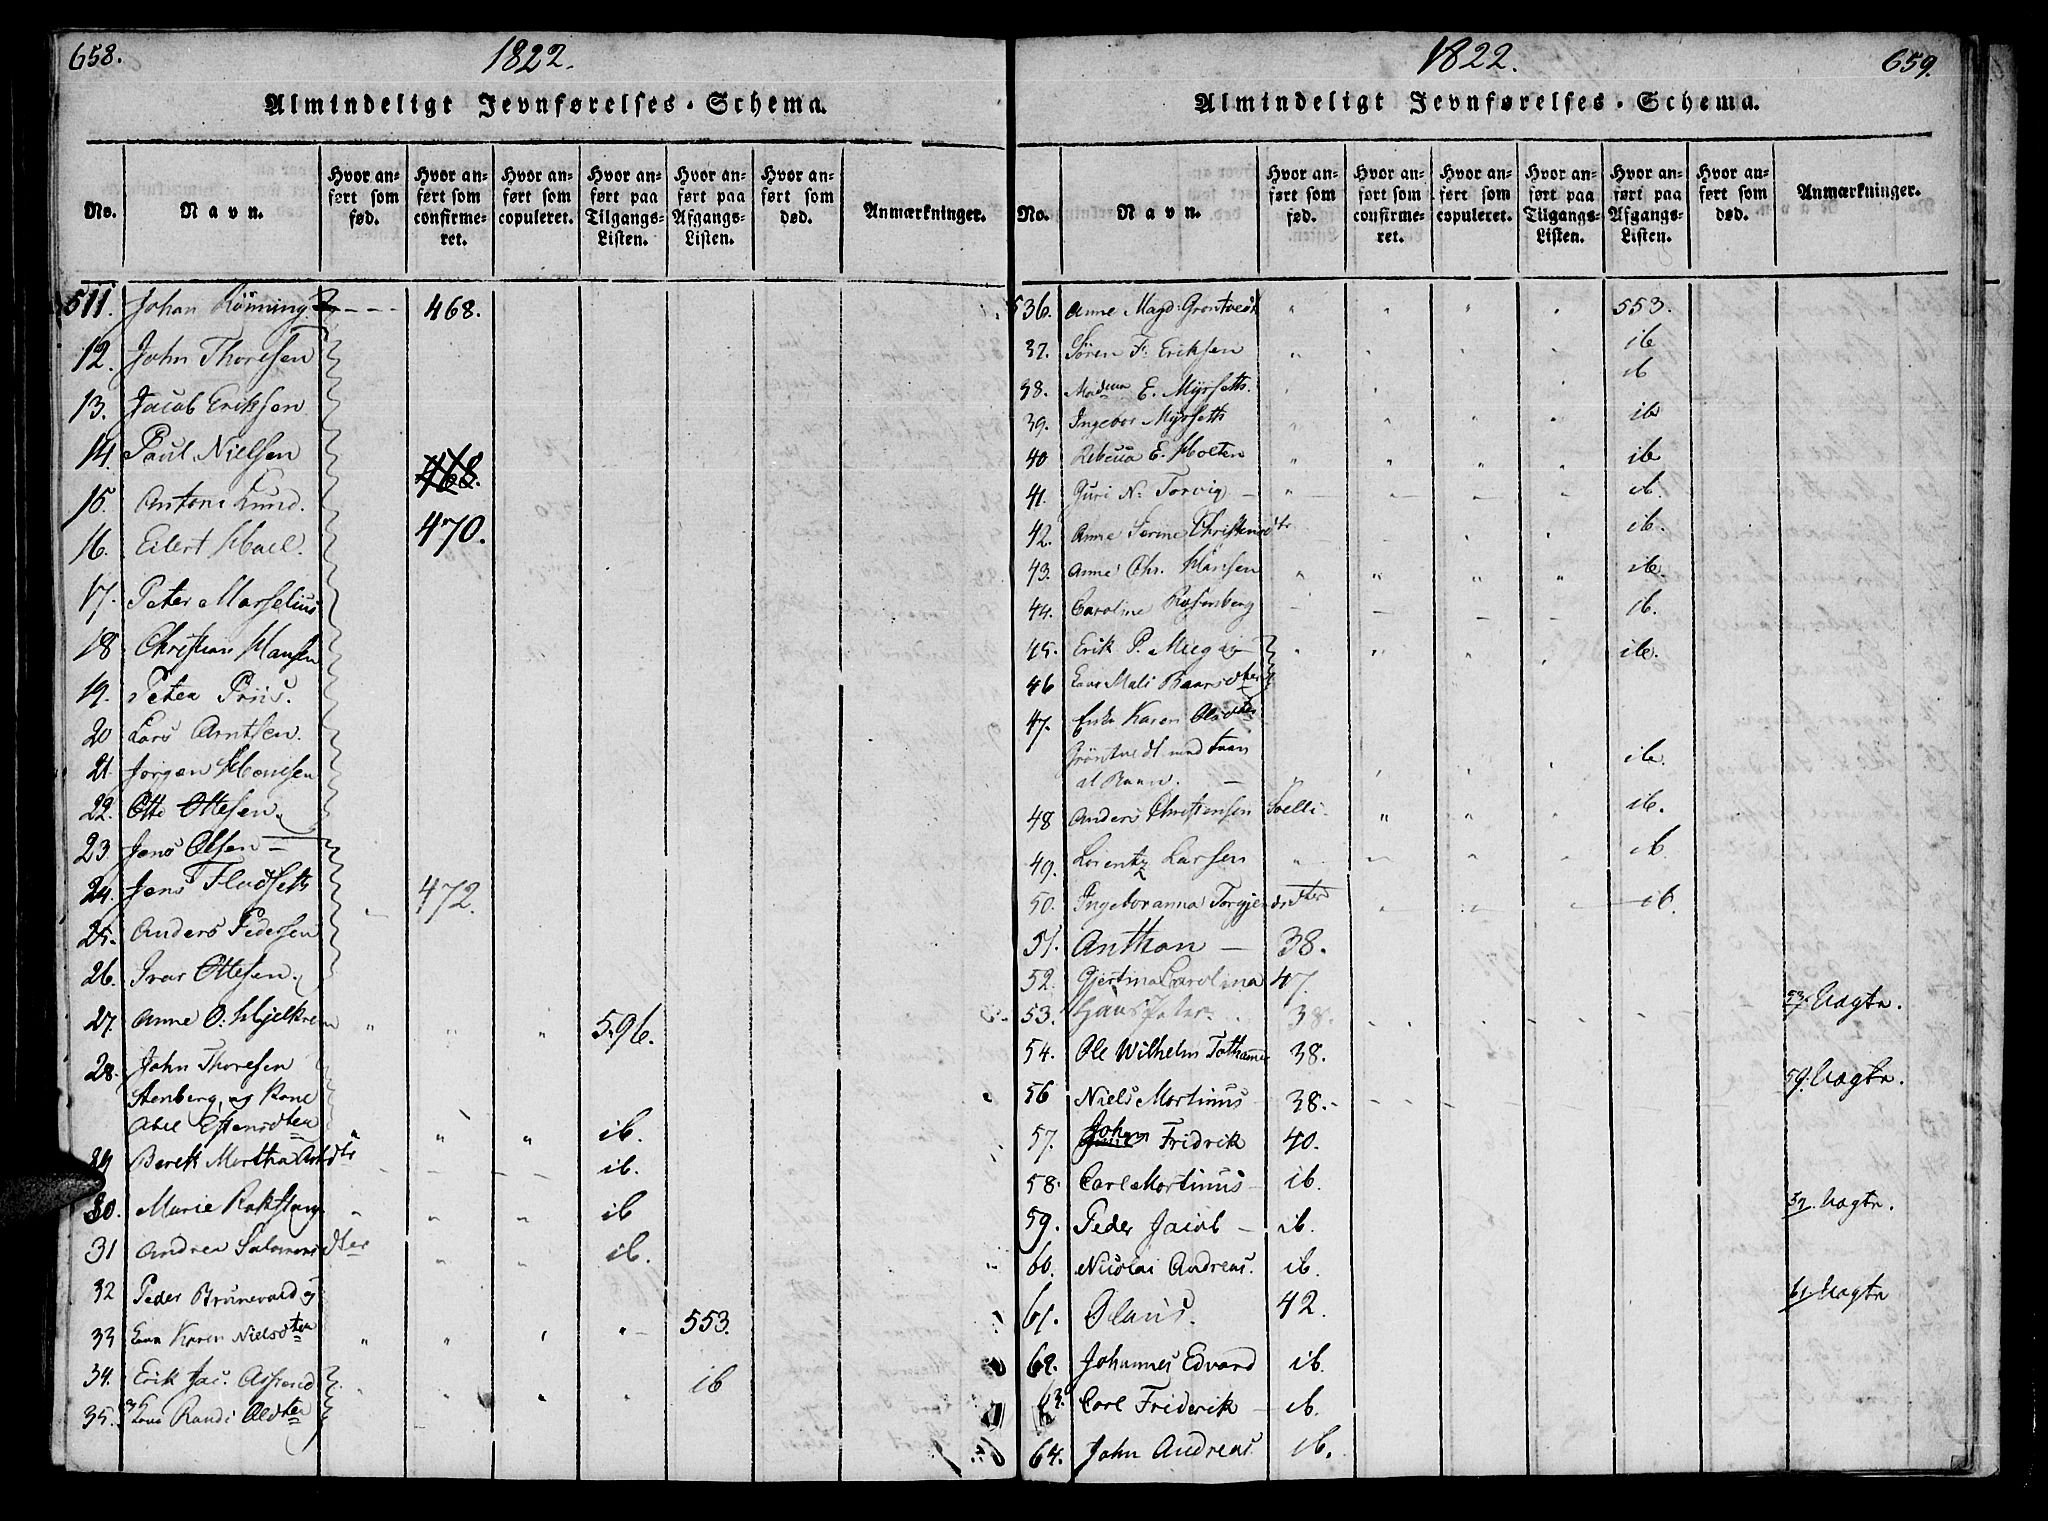 658.
1822.
Almindeligt Jevnførelses-Schema.
No.
Navn.
Hvor anført som fød.
Hvor anført som confirmeret.
Hvor anført som copuleret.
Hvor anført paa Tilgangs-Listen.
Hvor anført paa Afgangs-Listen.
Hvor anført som død.
Anmærkninger.
511. Johan Rönning 468.
12. John Thoresen
13. Jacob Eriksen
14. Paul Nielsen
468.
15. Anton Lund.
16. Eilert 470.
17. Peter Marselius
18 Christian Hansen
19. Peter Friis.
20 Lars Arntsen.
21. Jørgen
22. Otto Ottesen.
23. Jens Olsen
24. Jens Fladseth 472.
25. Anders Pedersen
26. Ivar Ottesen.
27. Anne O. Hjelkrem " " " 596.
28. John Thoresen
Stenberg, og Kone
Abel Estensdter " " " ib.
29 Berek Martha ib.
30. Marie " " " ib
31 Andrea Salomonsdter " " ib.
32 Peder Brunevold og
33 Karen Nielsdter " " " " 553.
34. Erik Jac. ib
35. Kone Randi Olsdter
1822.
659.
Almindeligt Jevnførelses-Schema.
No.
Navn.
Hvor anført som fød.
Hvor anført som confirmeret.
Hvor anført som copuleret.
Hvor anført paa Tilgangs-Listen.
Hvor anført paa Afgangs-Listen.
Hvor anført som død.
Anmærkninger.
536. Anne Magd: " " " " 553.
37. Søren F: Eriksen " " " " ib
38. E. Myrseth. ib
39. Ingebor Myrseth ib
40 Rebecca E. Holten " " " " ib
41. Guri N: Torvig ib.
42. Anne Serine Christensdtr ib.
43. Anne Chr. Hansen " " " " ib.
44. Caroline Rosenberg ib.
45. Erik P. " " " ib.
46 Mali
47. Enke Karen Olsdter
Gröntvedt med
ib.
48 Anders Christensen Solli. " " " ib.
49. Lorentz Larsen " " " " ib.
50. Ingeboranna ib.
51. Anthon 38.
52. Gjertina Carolina 47.
53. Hans Peter 38. 53. Vagtn.
54. Ole Wilhelm 38.
59. Vagtn.
56 Niels Martinus 38.
57. Johan Fridrik 40.
58. Carl Martinus ib.
59. Peder Jacob ib. 39. Vagtn.
60. Nicolai Andreas. ib.
61. Olaus. 42. 61. Vagtn
62. Johannes Edvard ib.
63. Carl Friderik ib.
64. John Andreas ib.